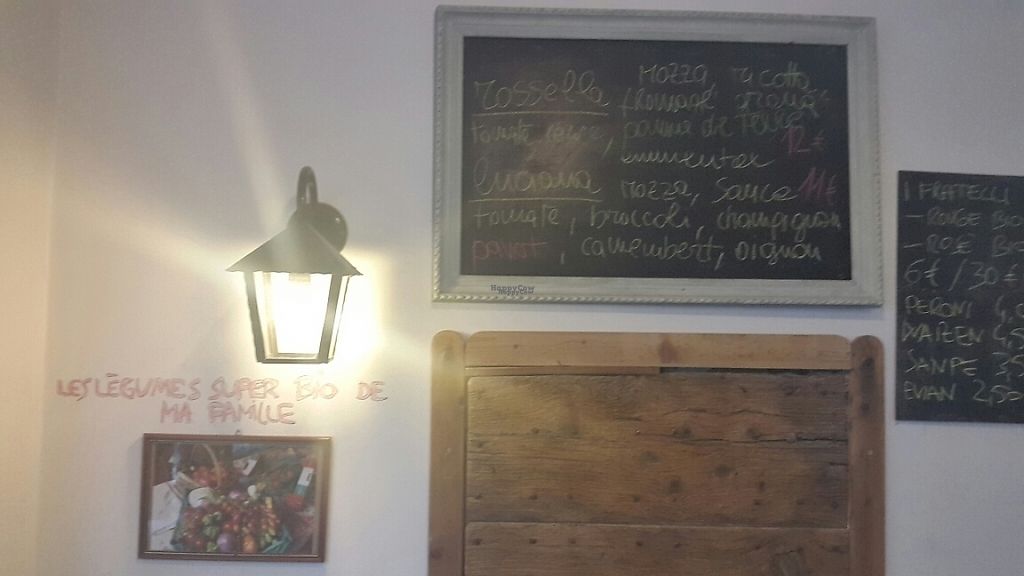 Rossella Mozza, ricotta
fromage
tomate, pomme de Terre 12€
emmental
Luciana Mozza, Sauce 11€
tomate, broccoli, champignon
pavot, camembert, oignon
HappyCow
I FRATELLI
- ROUGE BIO
- ROSÉ BIO
6€ / 30€
PERONI 4,
4,5
SANPE 3,5
EVIAN 2,50
LES LÉGUMES SUPER BIO DE
MA FAMILLE